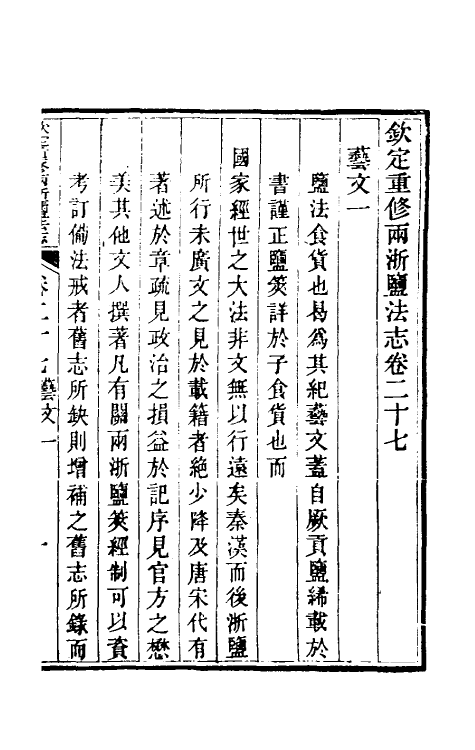 欽定重修兩浙鹽法志卷二十七
藝文一
鹽法食貨也曷爲其紀藝文蓋自厥貢鹽絺載於
書謹正鹽筴詳於子食貨也而
國家經世之大法非文無以行遠矣秦漢而後浙鹽
所行未廣文之見於載籍者絶少降及唐宋代有
著述於章疏見政治之損益於記序見官方之懋
美其他文人撰著凡有關兩浙鹽筴經制可以資
考訂備法戒者舊志所缺則增補之舊志所錄而
卷二十七 藝文一 一